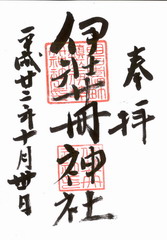 奉拝
伊弉冊神社
平成廿二年十月廿日